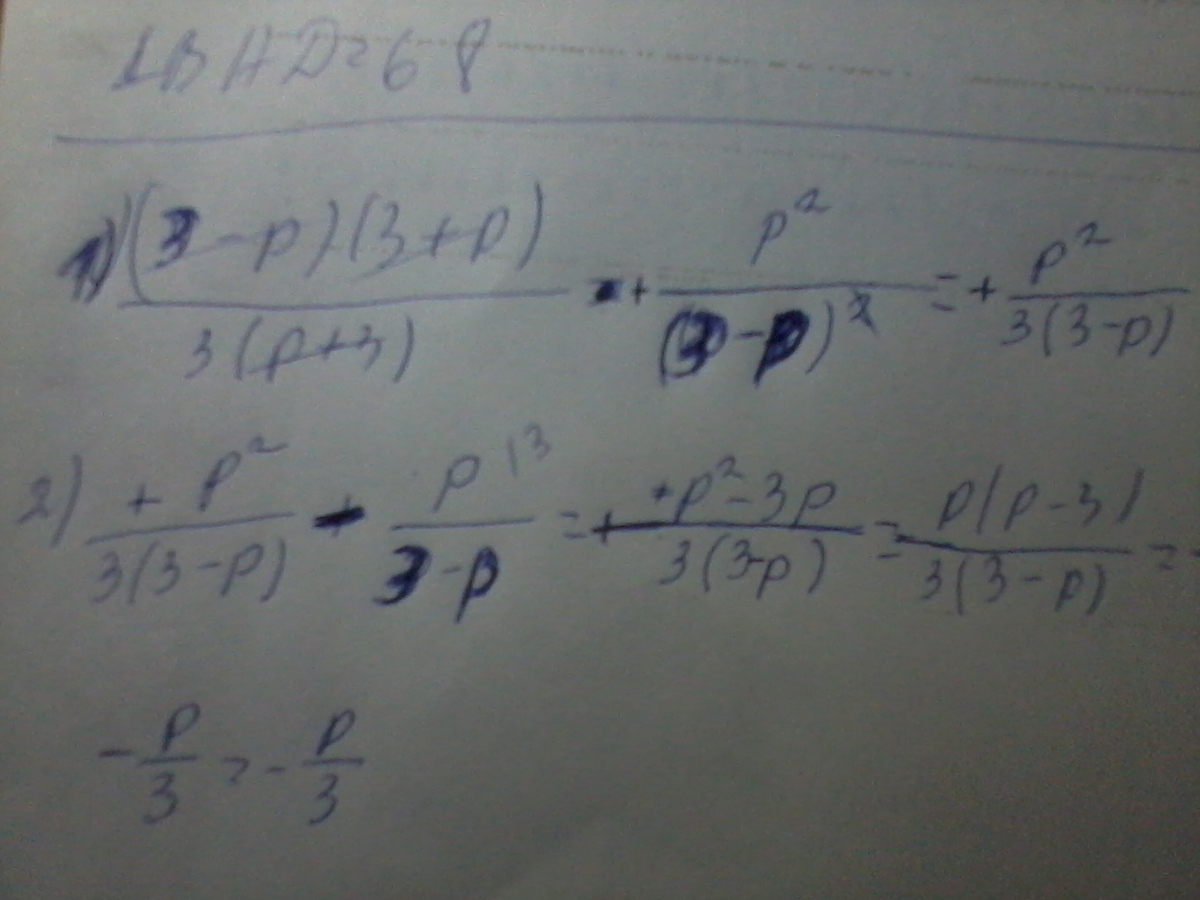 ∠BAD=68
1) (3-p)(3+p)/3(p+3) + p²/(3-p)² = + p²/3(3-p)
2) + p²/3(3-p) - p |3/3-p = + +p²-3p/3(3-p) = p(p-3)/3(3-p) = -
- p/3 = - p/3